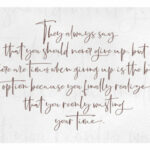 They always say
that you should never give up, but
there are times when giving up is the b
option because you finally realize
that you really wasting
your time.